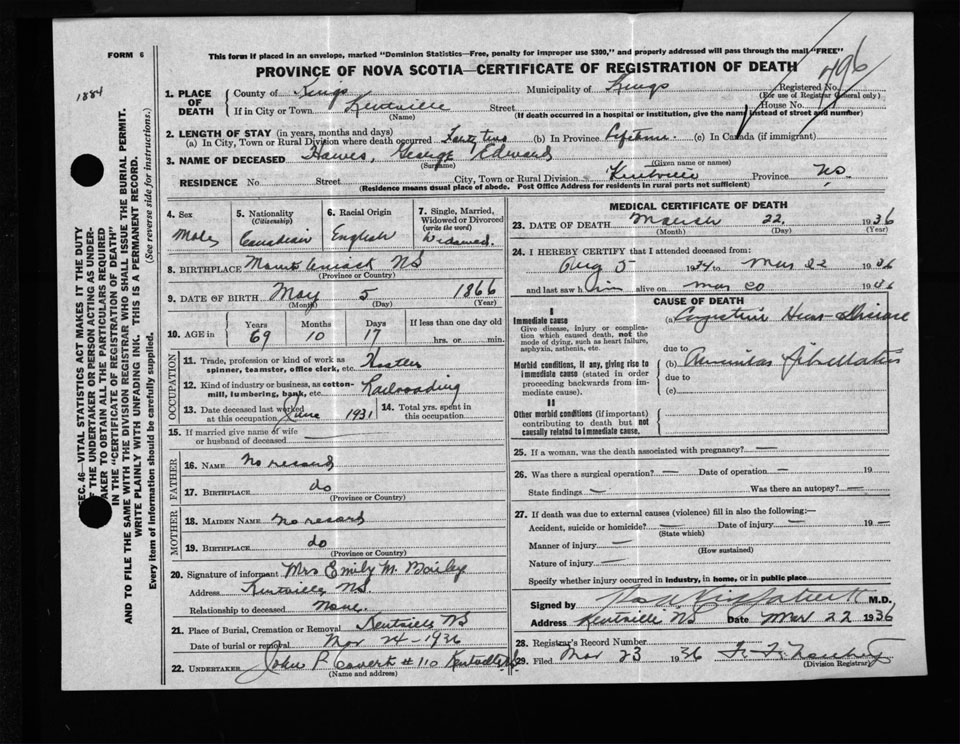 FORM 6
This form if placed in an envelope, marked "Dominion Statistics—Free, penalty for improper use $300," and properly addressed will pass through the mail "FREE"
PROVINCE OF NOVA SCOTIA—CERTIFICATE OF REGISTRATION OF DEATH
1884
496
1. PLACE OF DEATH County of Kings Municipality of Kings Registered No.
(For use of Registrar General only)
If in City or Town Kentville Street House No.
(Name) (If death occurred in a hospital or institution, give the name instead of street and number)
2. LENGTH OF STAY (in years, months and days)
(a) In City, Town or Rural Division where death occurred Forty two (b) In Province Lifetime. (c) In Canada (if immigrant)
3. NAME OF DECEASED Hawes, George Edward
(Surname) (Given name or names)
RESIDENCE No. Street City, Town or Rural Division Kentville Province NS
(Residence means usual place of abode. Post Office Address for residents in rural parts not sufficient)
4. Sex
Male
5. Nationality
(Citizenship)
Canadian
6. Racial Origin
English
7. Single, Married, Widowed or Divorced
(write the word)
Widowed.
8. BIRTHPLACE Mount Uniack NS
(Province or Country)
9. DATE OF BIRTH May 5 1866
(Month) (Day) (Year)
10. AGE in Years Months Days If less than one day old
69 10 17 hrs. or min.
OCCUPATION
11. Trade, profession or kind of work as
spinner, teamster, office clerk, etc. Hostler
12. Kind of industry or business, as cotton-
mill, lumbering, bank, etc. Railroading
13. Date deceased last worked
at this occupation June 1931
14. Total yrs. spent in this occupation
15. If married give name of wife
or husband of deceased —
FATHER
16. NAME No record
17. BIRTHPLACE do
(Province or Country)
MOTHER
18. MAIDEN NAME no record
19. BIRTHPLACE do
(Province or Country)
20. Signature of informant Mrs Emily M. Bailey
Address Kentville NS.
Relationship to deceased None.
21. Place of Burial, Cremation or Removal Kentville NS
Date of burial or removal Mar 24 - 1936
22. UNDERTAKER John P #110 Kentville NS
(Name and address)
MEDICAL CERTIFICATE OF DEATH
23. DATE OF DEATH March 22. 1936
(Month) (Day) (Year)
24. I HEREBY CERTIFY that I attended deceased from:
Aug 5 1934 to Mar 22 1936
and last saw him alive on Mar 20 19
CAUSE OF DEATH
I
Immediate cause
Give disease, injury or complication which caused death, not the mode of dying, such as heart failure, asphyxia, asthenia, etc.
(a) Congestive Heart Disease
due to
Morbid conditions, if any, giving rise to immediate cause (stated in order proceeding backwards from immediate cause).
(b) Auricular fibrillation
due to
(c)
II
Other morbid conditions (if important) contributing to death but not causally related to immediate cause.
25. If a woman, was the death associated with pregnancy? —
26. Was there a surgical operation? — Date of operation — 19
State findings — Was there an autopsy? —
27. If death was due to external causes (violence) fill in also the following:—
Accident, suicide or homicide? — Date of injury — 19 —
(State which)
Manner of injury —
(How sustained)
Nature of injury —
Specify whether injury occurred in industry, in home, or in public place
Signed by M.D.
Address Kentville NS Date Mar 22 1936
28. Registrar's Record Number
29. Filed Mar 23 1936
(Division Registrar)
SEC. 46—VITAL STATISTICS ACT MAKES IT THE DUTY
OF THE UNDERTAKER OR PERSON ACTING AS UNDER-
TAKER TO OBTAIN ALL THE PARTICULARS REQUIRED
IN THE "CERTIFICATE OF REGISTRATION OF DEATH"
AND TO FILE THE SAME WITH THE DIVISION REGISTRAR WHO SHALL ISSUE THE BURIAL PERMIT.
WRITE PLAINLY WITH UNFADING INK. THIS IS A PERMANENT RECORD.
Every item of information should be carefully supplied. (See reverse side for instructions.)